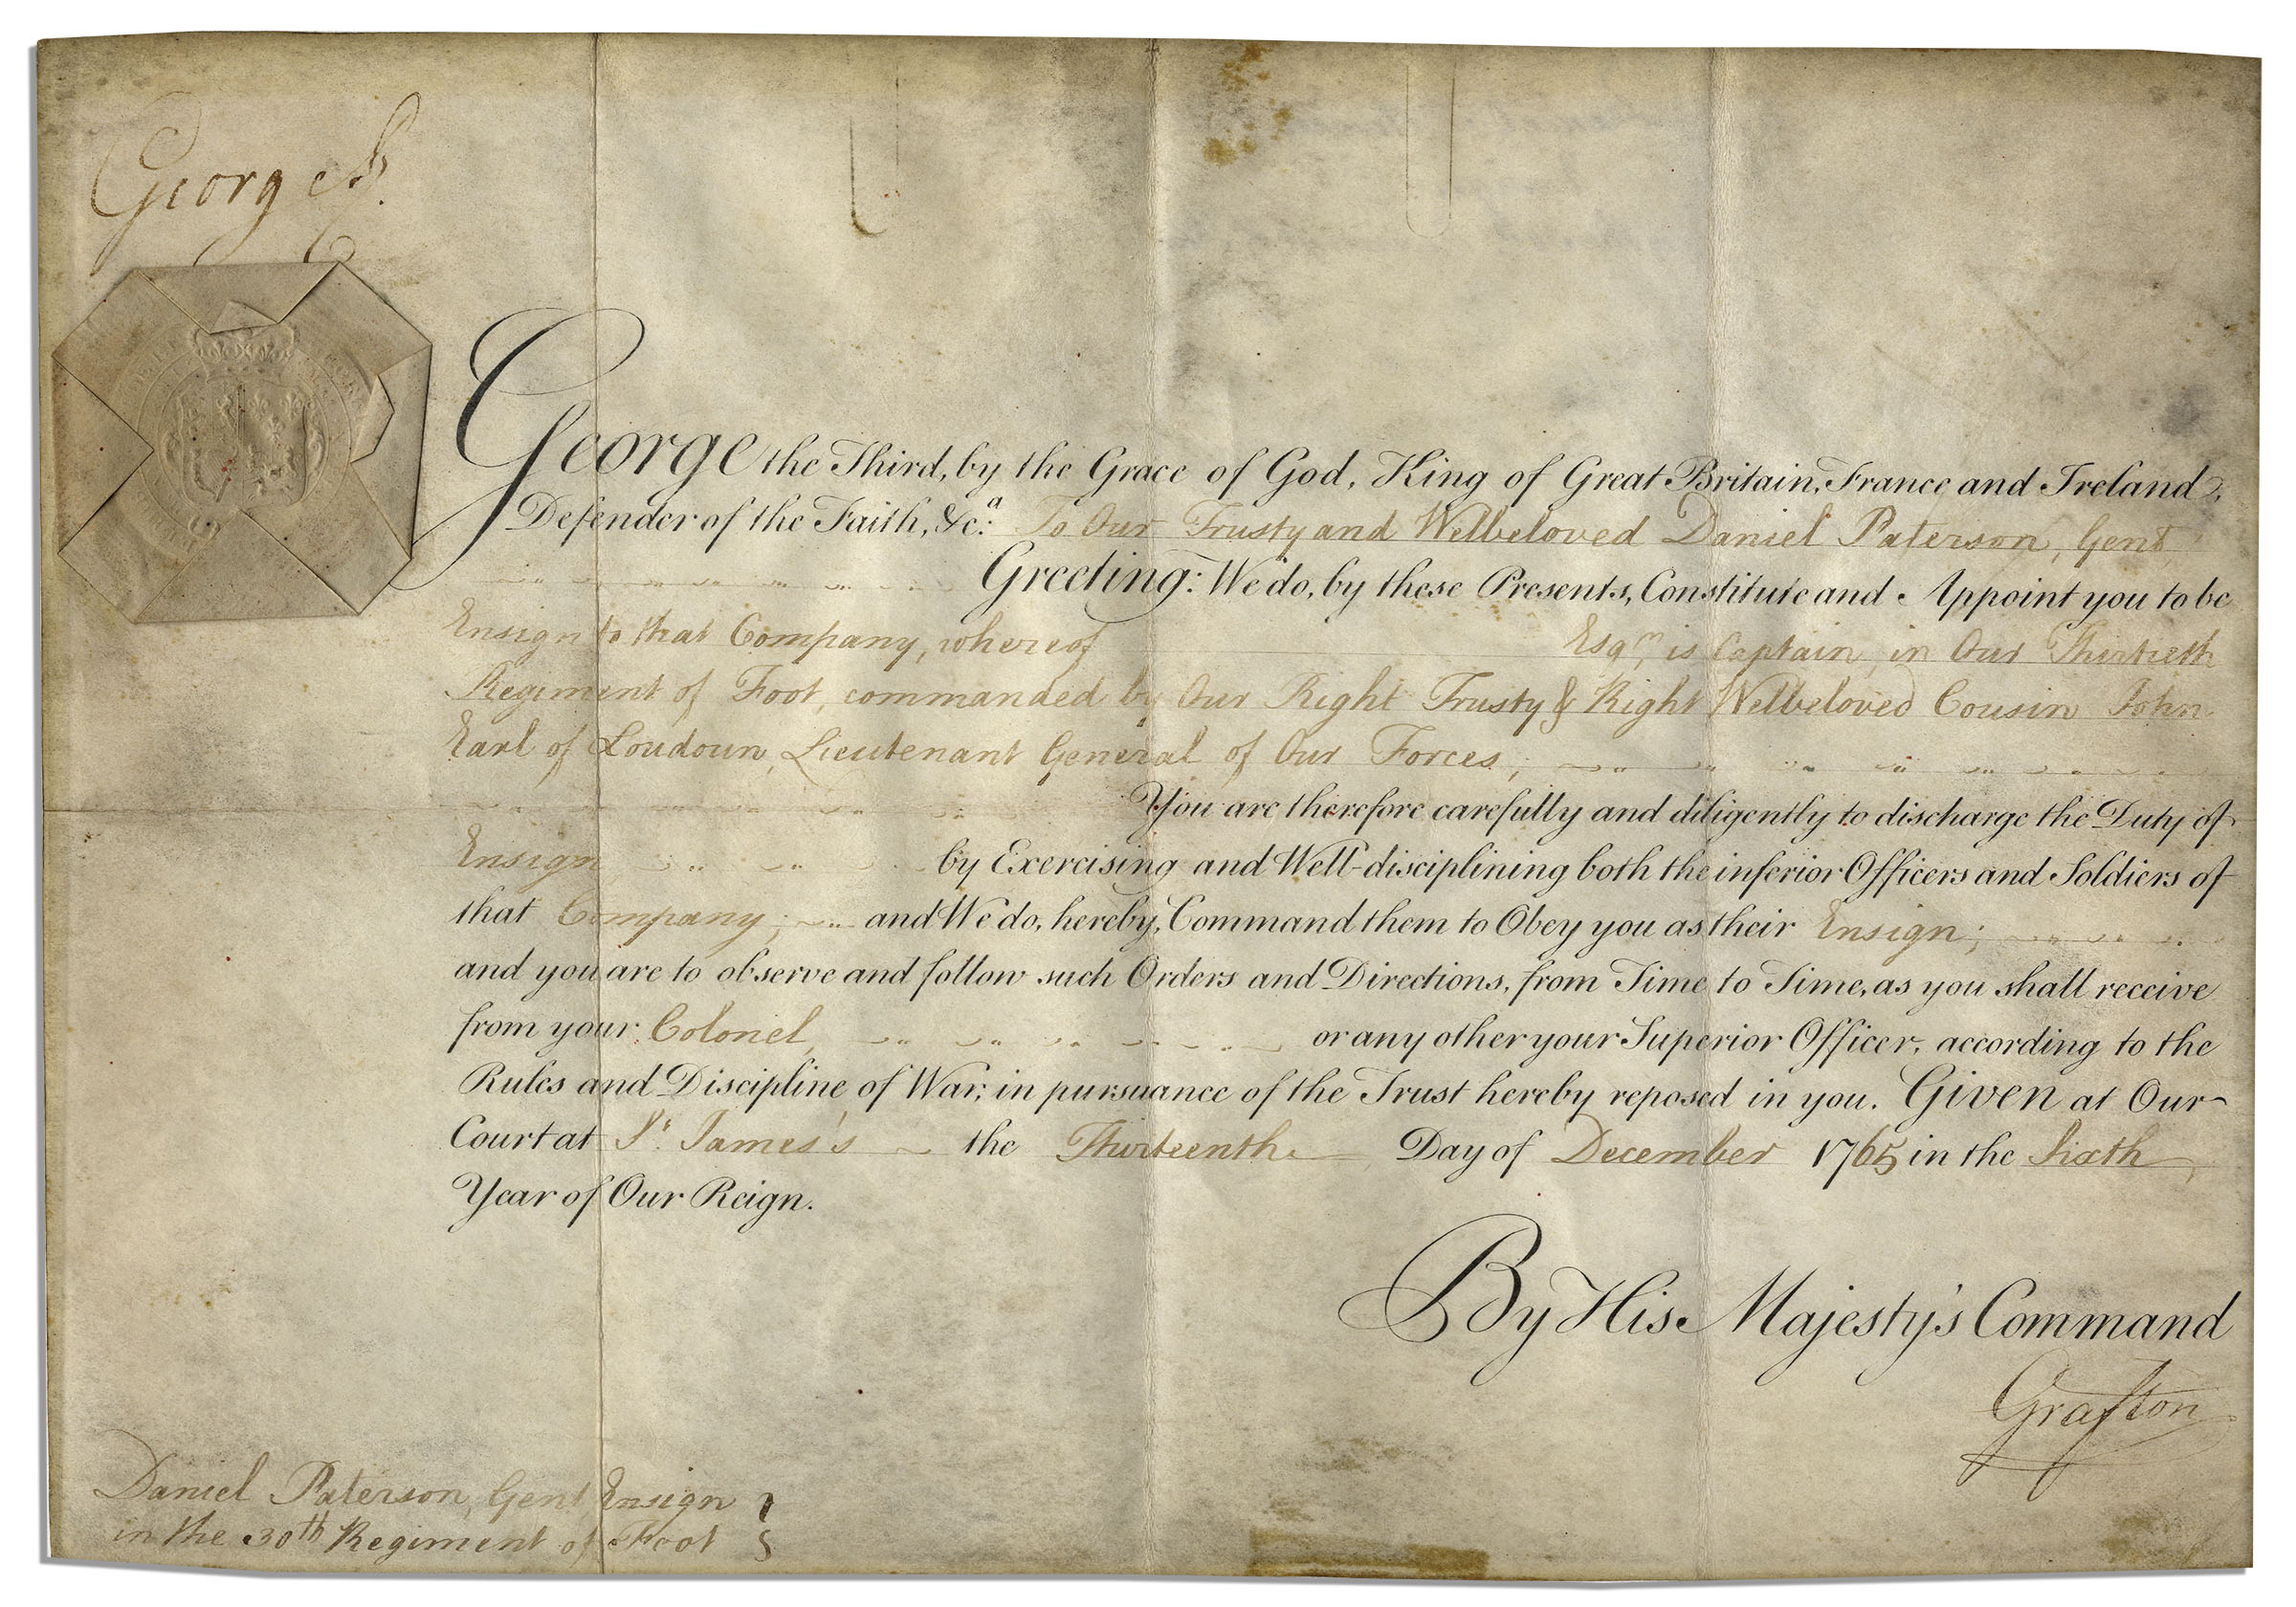 George R.
George the Third, by the Grace of God, King of Great Britain, France and Ireland,
Defender of the Faith, &c.a To Our Trusty and Welbeloved Daniel Paterson, Gent,
Greeting: We do, by these Presents, Constitute and Appoint you to be
Ensign to that Company, whereof Esqr, is Captain, in Our Thirtieth
Regiment of Foot, commanded by Our Right Trusty & Right Welbeloved Cousin John
Earl of Loudoun, Lieutenant General of Our Forces;
You are therefore carefully and diligently to discharge the Duty of
Ensign by Exercising and Well-disciplining both the inferior Officers and Soldiers of
that Company; and We do, hereby, Command them to Obey you as their Ensign;
and you are to observe and follow such Orders and Directions, from Time to Time, as you shall receive
from your Colonel, or any other your Superior Officer, according to the
Rules and Discipline of War, in pursuance of the Trust hereby reposed in you. Given at Our
Court at St. James's the Thirteenth Day of December 1765 in the Sixth
Year of Our Reign.
By His Majesty's Command
Grafton
Daniel Paterson, Gent, Ensign
in the 30th Regiment of Foot